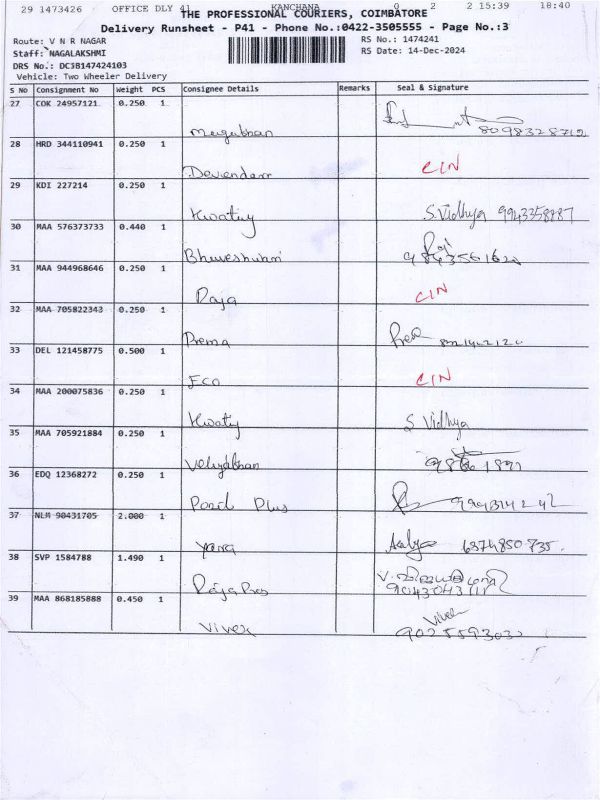 29 1473426 OFFICE DLY 41 KANCHANA 0 2 2 15:39 18:40
THE PROFESSIONAL COURIERS, COIMBATORE
Delivery Runsheet - P41 - Phone No.:0422-3505555 - Page No.:3
Route: V N R NAGAR RS No.: 1474241
Staff: NAGALAKSHMI RS Date: 14-Dec-2024
DRS No.: DC3B147424103
Vehicle: Two Wheeler Delivery
S No Consignment No Weight PCS Consignee Details Remarks Seal & Signature
27 COK 24957121 0.250 1
8098328712
28 HRD 344110941 0.250 1
Devendarr CIN
29 KDI 227214 0.250 1
Kwaty S. Vidhya 9943358887
30 MAA 576373733 0.440 1
Bhuveshuhri
31 MAA 944968646 0.250 1
Raja CIN
32 MAA 705822343 0.250 1
Prema
33 DEL 121458775 0.500 1
Eco CIN
34 MAA 200075836 0.250 1
Kwaty S Vidhya
35 MAA 705921884 0.250 1
36 EDQ 12368272 0.250 1
Plus
37 NLM 90431705 2.000 1
6374850735.
38 SVP 1584788 1.490 1
39 MAA 868185888 0.450 1
Vivek Vivek